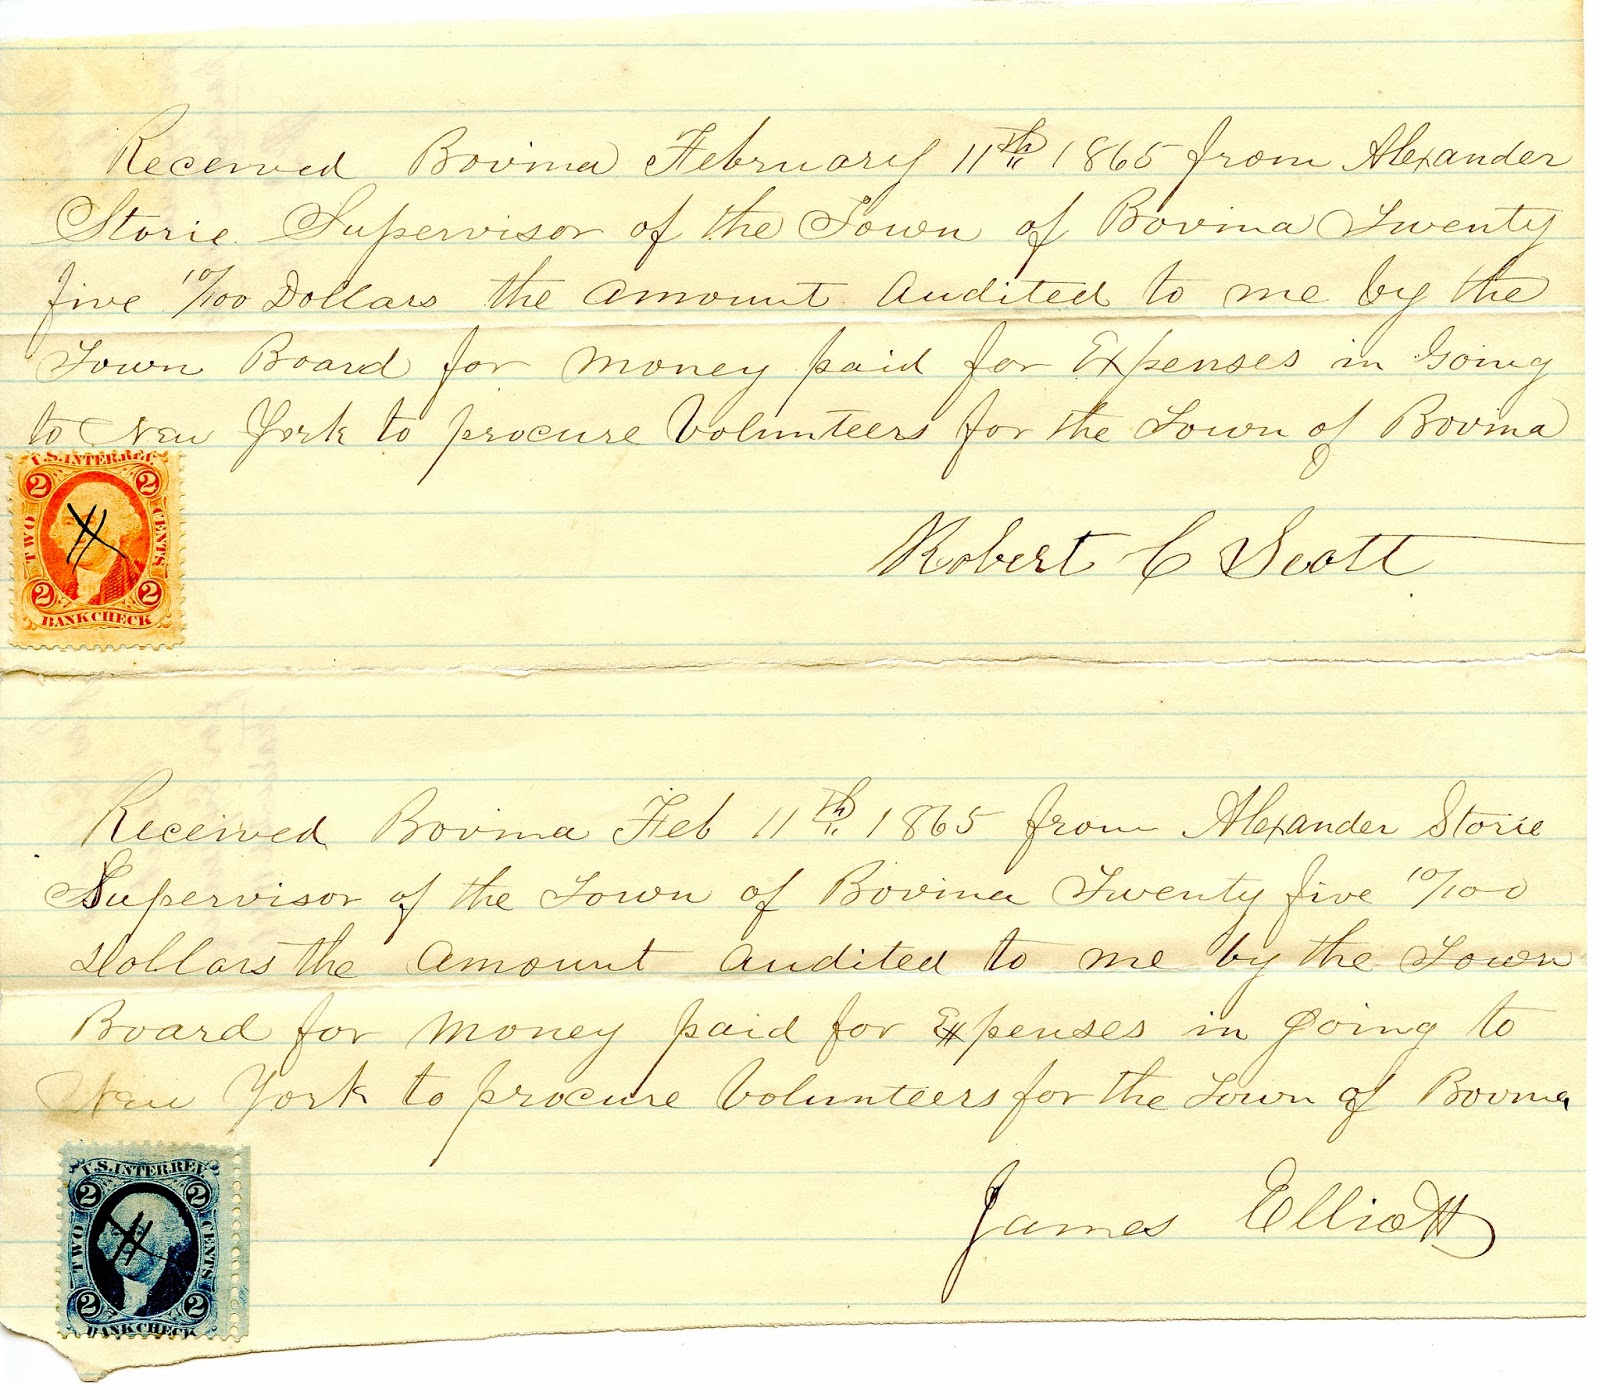 Received Bovina February 11th 1865 from Alexander
Storie Supervisor of the Town of Bovina Twenty
five 10/100 Dollars the amount Audited to me by the
Town Board for money paid for Expenses in Going
to New York to procure Volunteers for the Town of Bovina
U.S. INTER. REV.
2 2
TWO CENTS
2 2
BANK CHECK
Robert C Scott
Received Bovina Feb 11th 1865 from Alexander Storie
Supervisor of the Town of Bovina Twenty five 10/100
Dollars the Amount Audited to me by the Town
Board for money paid for Expenses in going to
New York to procure Volunteers for the Town of Bovina
U.S. INTER. REV.
2 2
TWO CENTS
2 2
BANK CHECK
James Elliott